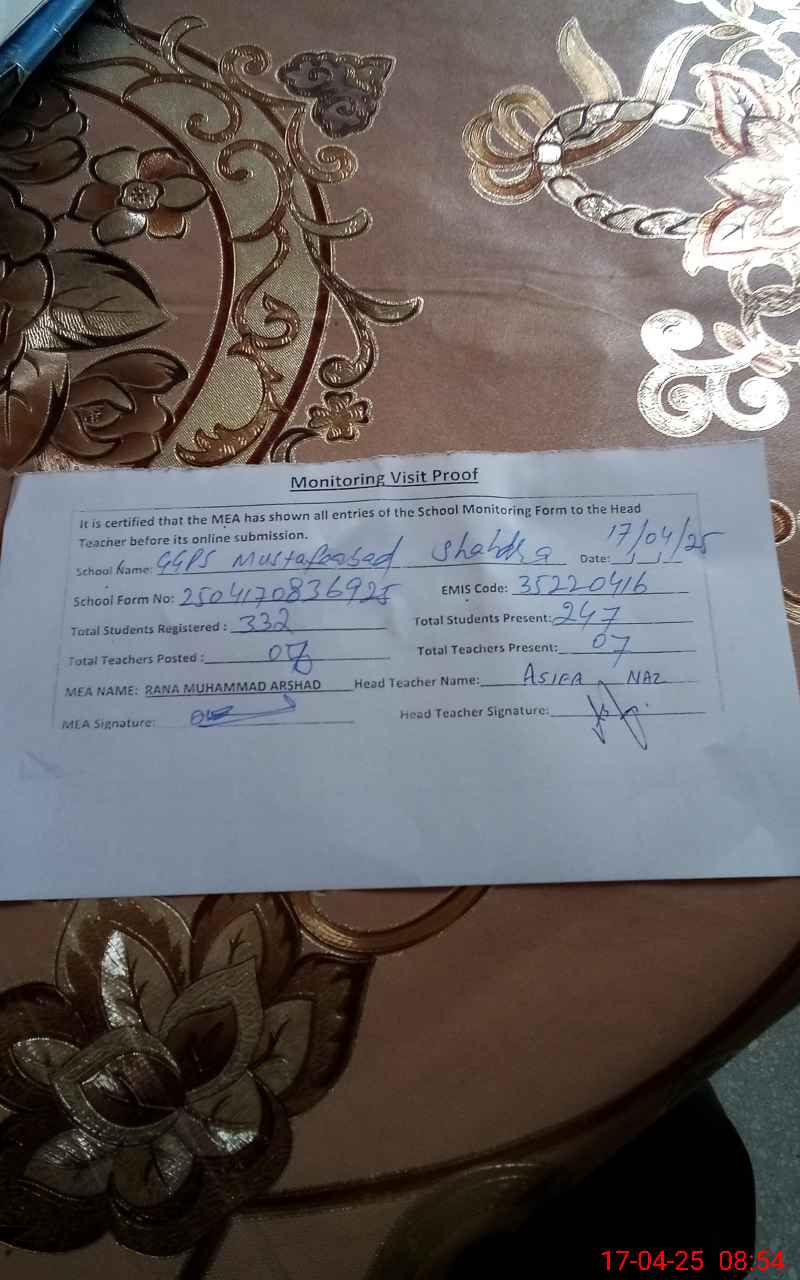 Monitoring Visit Proof
It is certified that the MEA has shown all entries of the School Monitoring Form to the Head
Teacher before its online submission.
School Name: GGPS Mustafaabad Shahdra Date: 17/04/25
School Form No: 2504170836925 EMIS Code: 35220416
Total Students Registered : 332 Total Students Present: 247
Total Teachers Posted : 08 Total Teachers Present: 07
MEA NAME: RANA MUHAMMAD ARSHAD Head Teacher Name: ASIFA NAZ
MEA Signature: Head Teacher Signature:
17-04-25 08:54